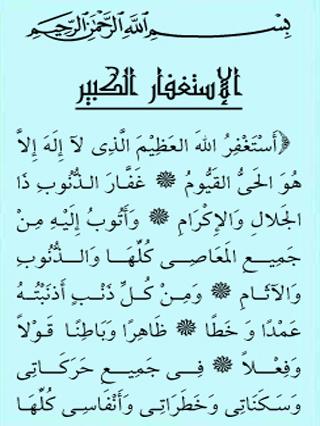 بِسْمِ اللهِ الرَّحْمَنِ الرَّحِيمِ
الإستغفار الكبير
﴿أَسْتَغْفِرُ اللهَ العَظِيْمَ الَّذِى لآ إِلَهَ إِلاَّ
هُوَ الحَىُّ القَيُّومُ ❁ غَفَّارَ الذُّنُوبِ ذَا
الجَلالِ وَالإِكْرَامِ ❁ وَأَتُوبُ إِلَيْهِ مِنْ
جَمِيعِ المَعَاصِى كُلِّهَا وَالذُّنُوبِ
وَالآثَامِ ❁ وَمِنْ كُلِّ ذَنْبٍ أَذنَبْتُهُ
عَمْدًا وَ خَطًا ❁ ظَاهِرًا وَبَاطِنًا قَوْلاً
وَفِعْلاً ❁ فِى جَمِيعِ حَرَكَاتِى
وَسَكَنَاتِى وَخَطَرَاتِى وَأَنْفَاسِى كُلِّهَا